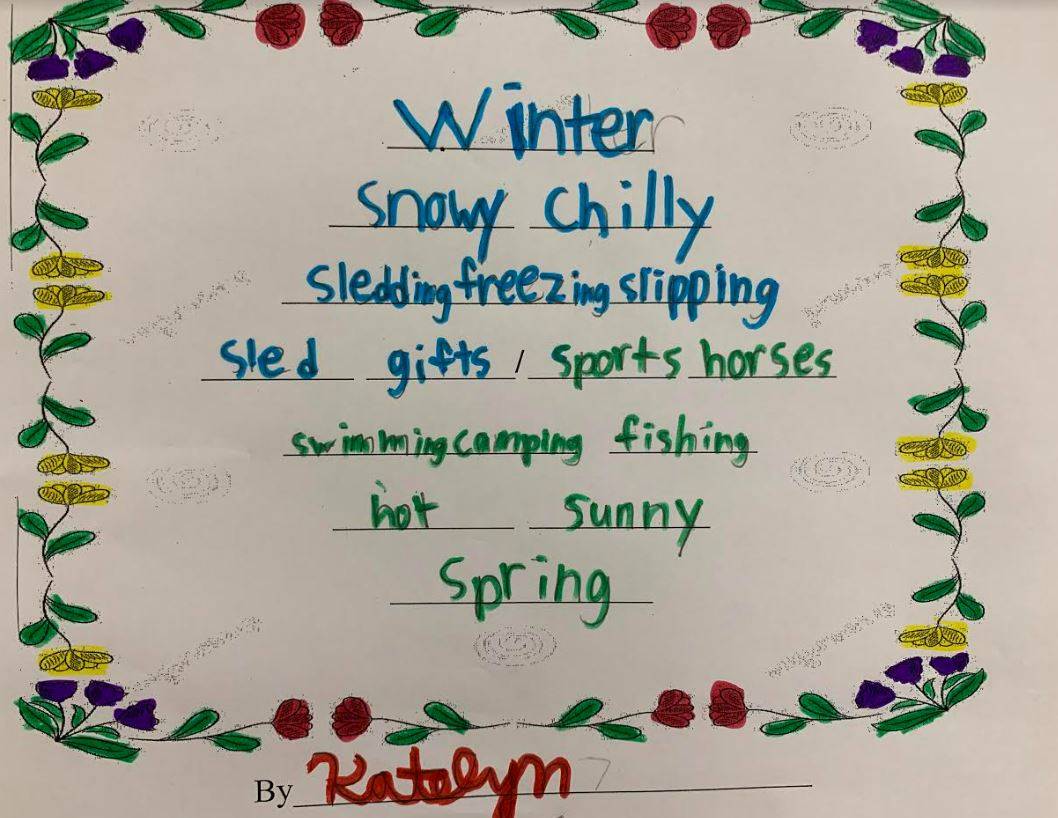 Winter
Snowy Chilly
Sledding freezing slipping
Sled gifts / sports horses
swimming camping fishing
hot sunny
Spring
By Katelyn